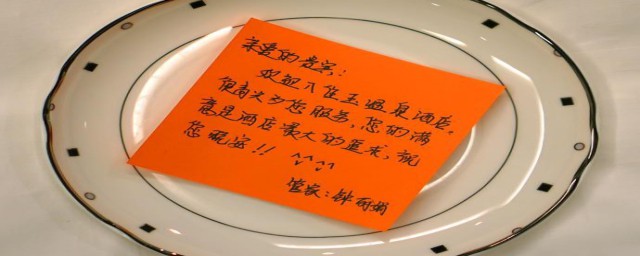 亲爱的贵宾：
欢迎入住玉温泉酒店。
很高兴为您服务，您的满
意是酒店最大的追求，祝
您晚安!! ^^ ^^
管家：钟丽娟